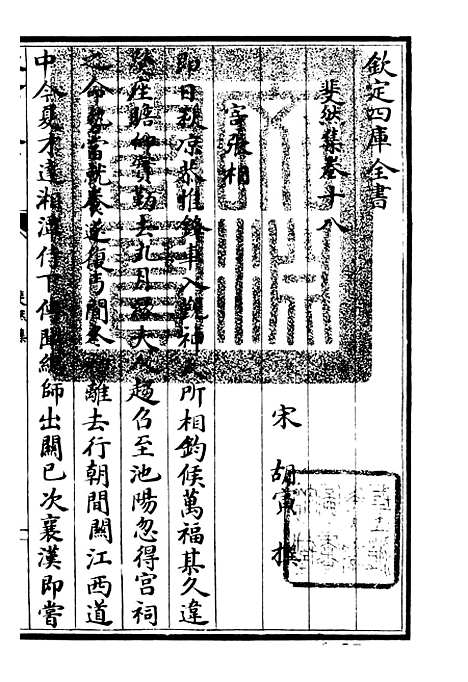 欽定四庫全書
斐然集卷十八
宋 胡寅 撰
寄張相
即日秋涼恭推錦車入覲神所相鈞候萬福某久違
墜庄瞻仰實勤去九月大趨召至池陽忽得宮祠
之命就當就養還復間離去行朝間關江西道
中今夏才達湘潭信下傳聞師出關已次襄漢即嘗